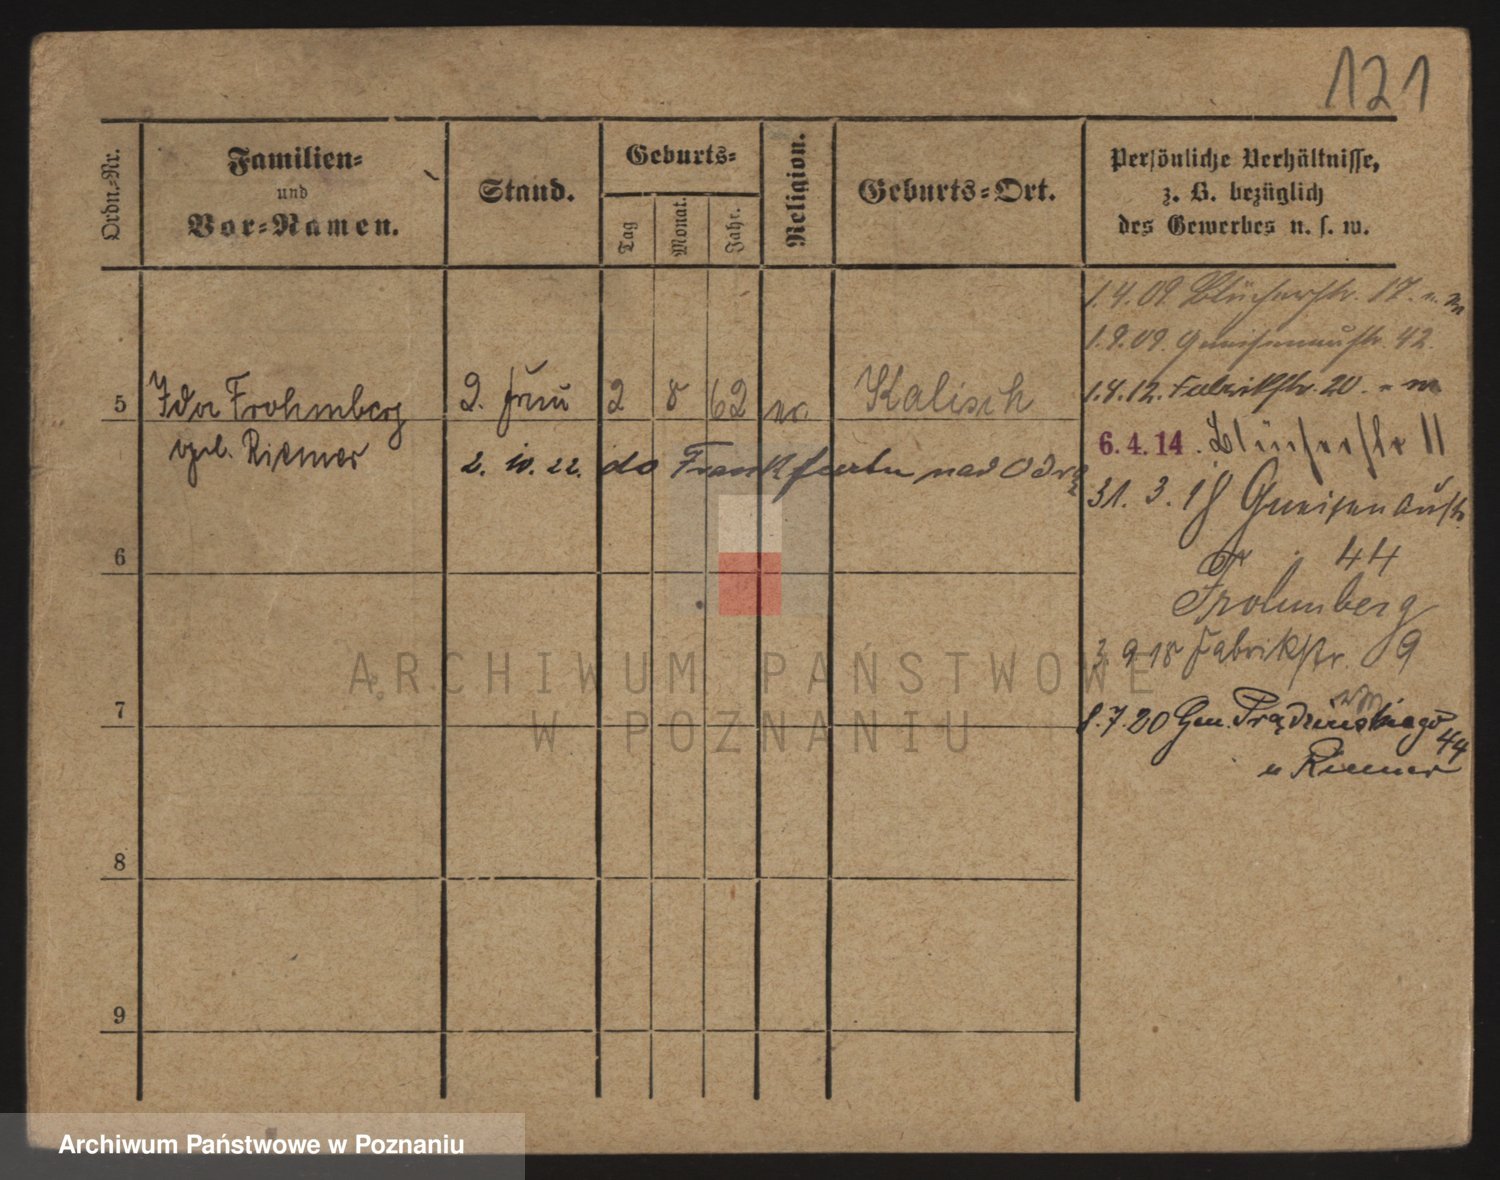 121
Ordn.-Nr.
Familien-
und
Vor-Namen.
Stand.
Geburts-
Tag
Monat.
Jahr.
Religion.
Geburts-Ort.
Persönliche Verhältnisse,
z. B. bezüglich
des Gewerbes u. s. w.
1.4.09. Blücherstr. 17.
1.9.09. Gneisenaustr. 42.
1.4.12. Fabrikstr. 20.
5 Ida Frohmberg 2. Frau 2 8 62 Kalisch
6.4.14. Blücherstr 11
geb. Riemer
2. 10. 22. do Frankfurtu nad Odrą
31. 3. 18 Gneisenaustr.
44
6
Frohmberg
3. 9 18 Fabrikstr. 9
7
8.7.20 Gen. Prądzińskiego 44
u Riemer
8
9
ARCHIWUM PAŃSTWOWE
W POZNANIU
Archiwum Państwowe w Poznaniu